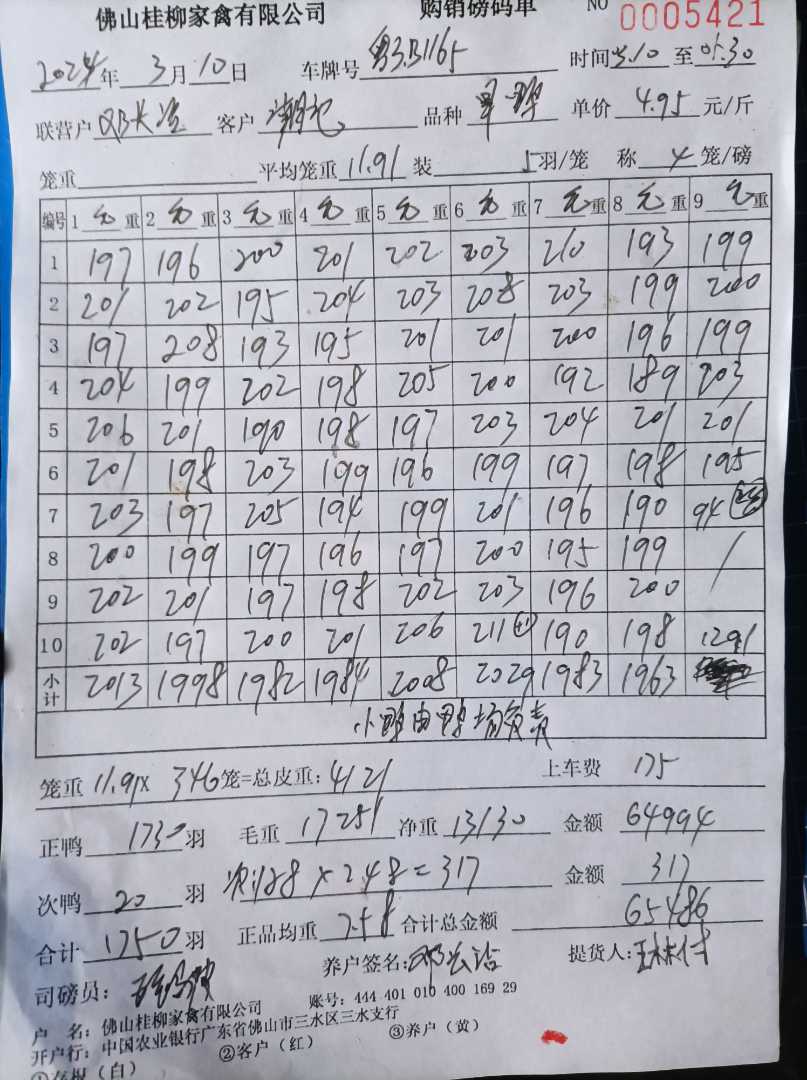 佛山桂柳家禽有限公司 购销磅码单 NO 0005421
2024年 3月10日 车牌号 粤J.B1165 时间 至
联营户 客户 品种 单价 4.95 元/斤
笼重 平均笼重 11.91 装 5羽/笼 称 4 笼/磅
编号 1 毛 重 2 毛 重 3 毛 重 4 毛 重 5 毛 重 6 毛 重 7 毛 重 8 毛 重 9 毛 重
1 197 196 200 201 202 203 210 193 199
2 201 202 195 204 203 208 203 199 200
3 197 208 193 195 201 201 200 196 199
4 204 199 202 198 205 200 192 189 203
5 206 201 190 198 197 203 204 201 201
6 201 198 203 199 196 199 197 198 195
7 203 197 205 194 199 201 196 190 94
8 200 199 197 196 197 200 195 199 /
9 202 201 197 198 202 203 196 200
10 202 197 200 201 206 211 190 198 1291
小计 2013 1998 1982 1984 2008 2029 1983 1963
小鸭由鸭场负责
笼重 11.91x 346笼=总皮重: 4121 上车费 175
正鸭 1730 羽 毛重 17251 净重 13130 金额 64994
次鸭 20 羽 次:128 x 2.48 = 317 金额 317
合计 1750羽 正品均重 7.58 合计总金额 65486
司磅员: 养户签名: 提货人:
户 名: 佛山桂柳家禽有限公司 账号: 444 401 010 400 169 29
开户行: 中国农业银行广东省佛山市三水区三水支行
①存根(白) ②客户(红) ③养户(黄)